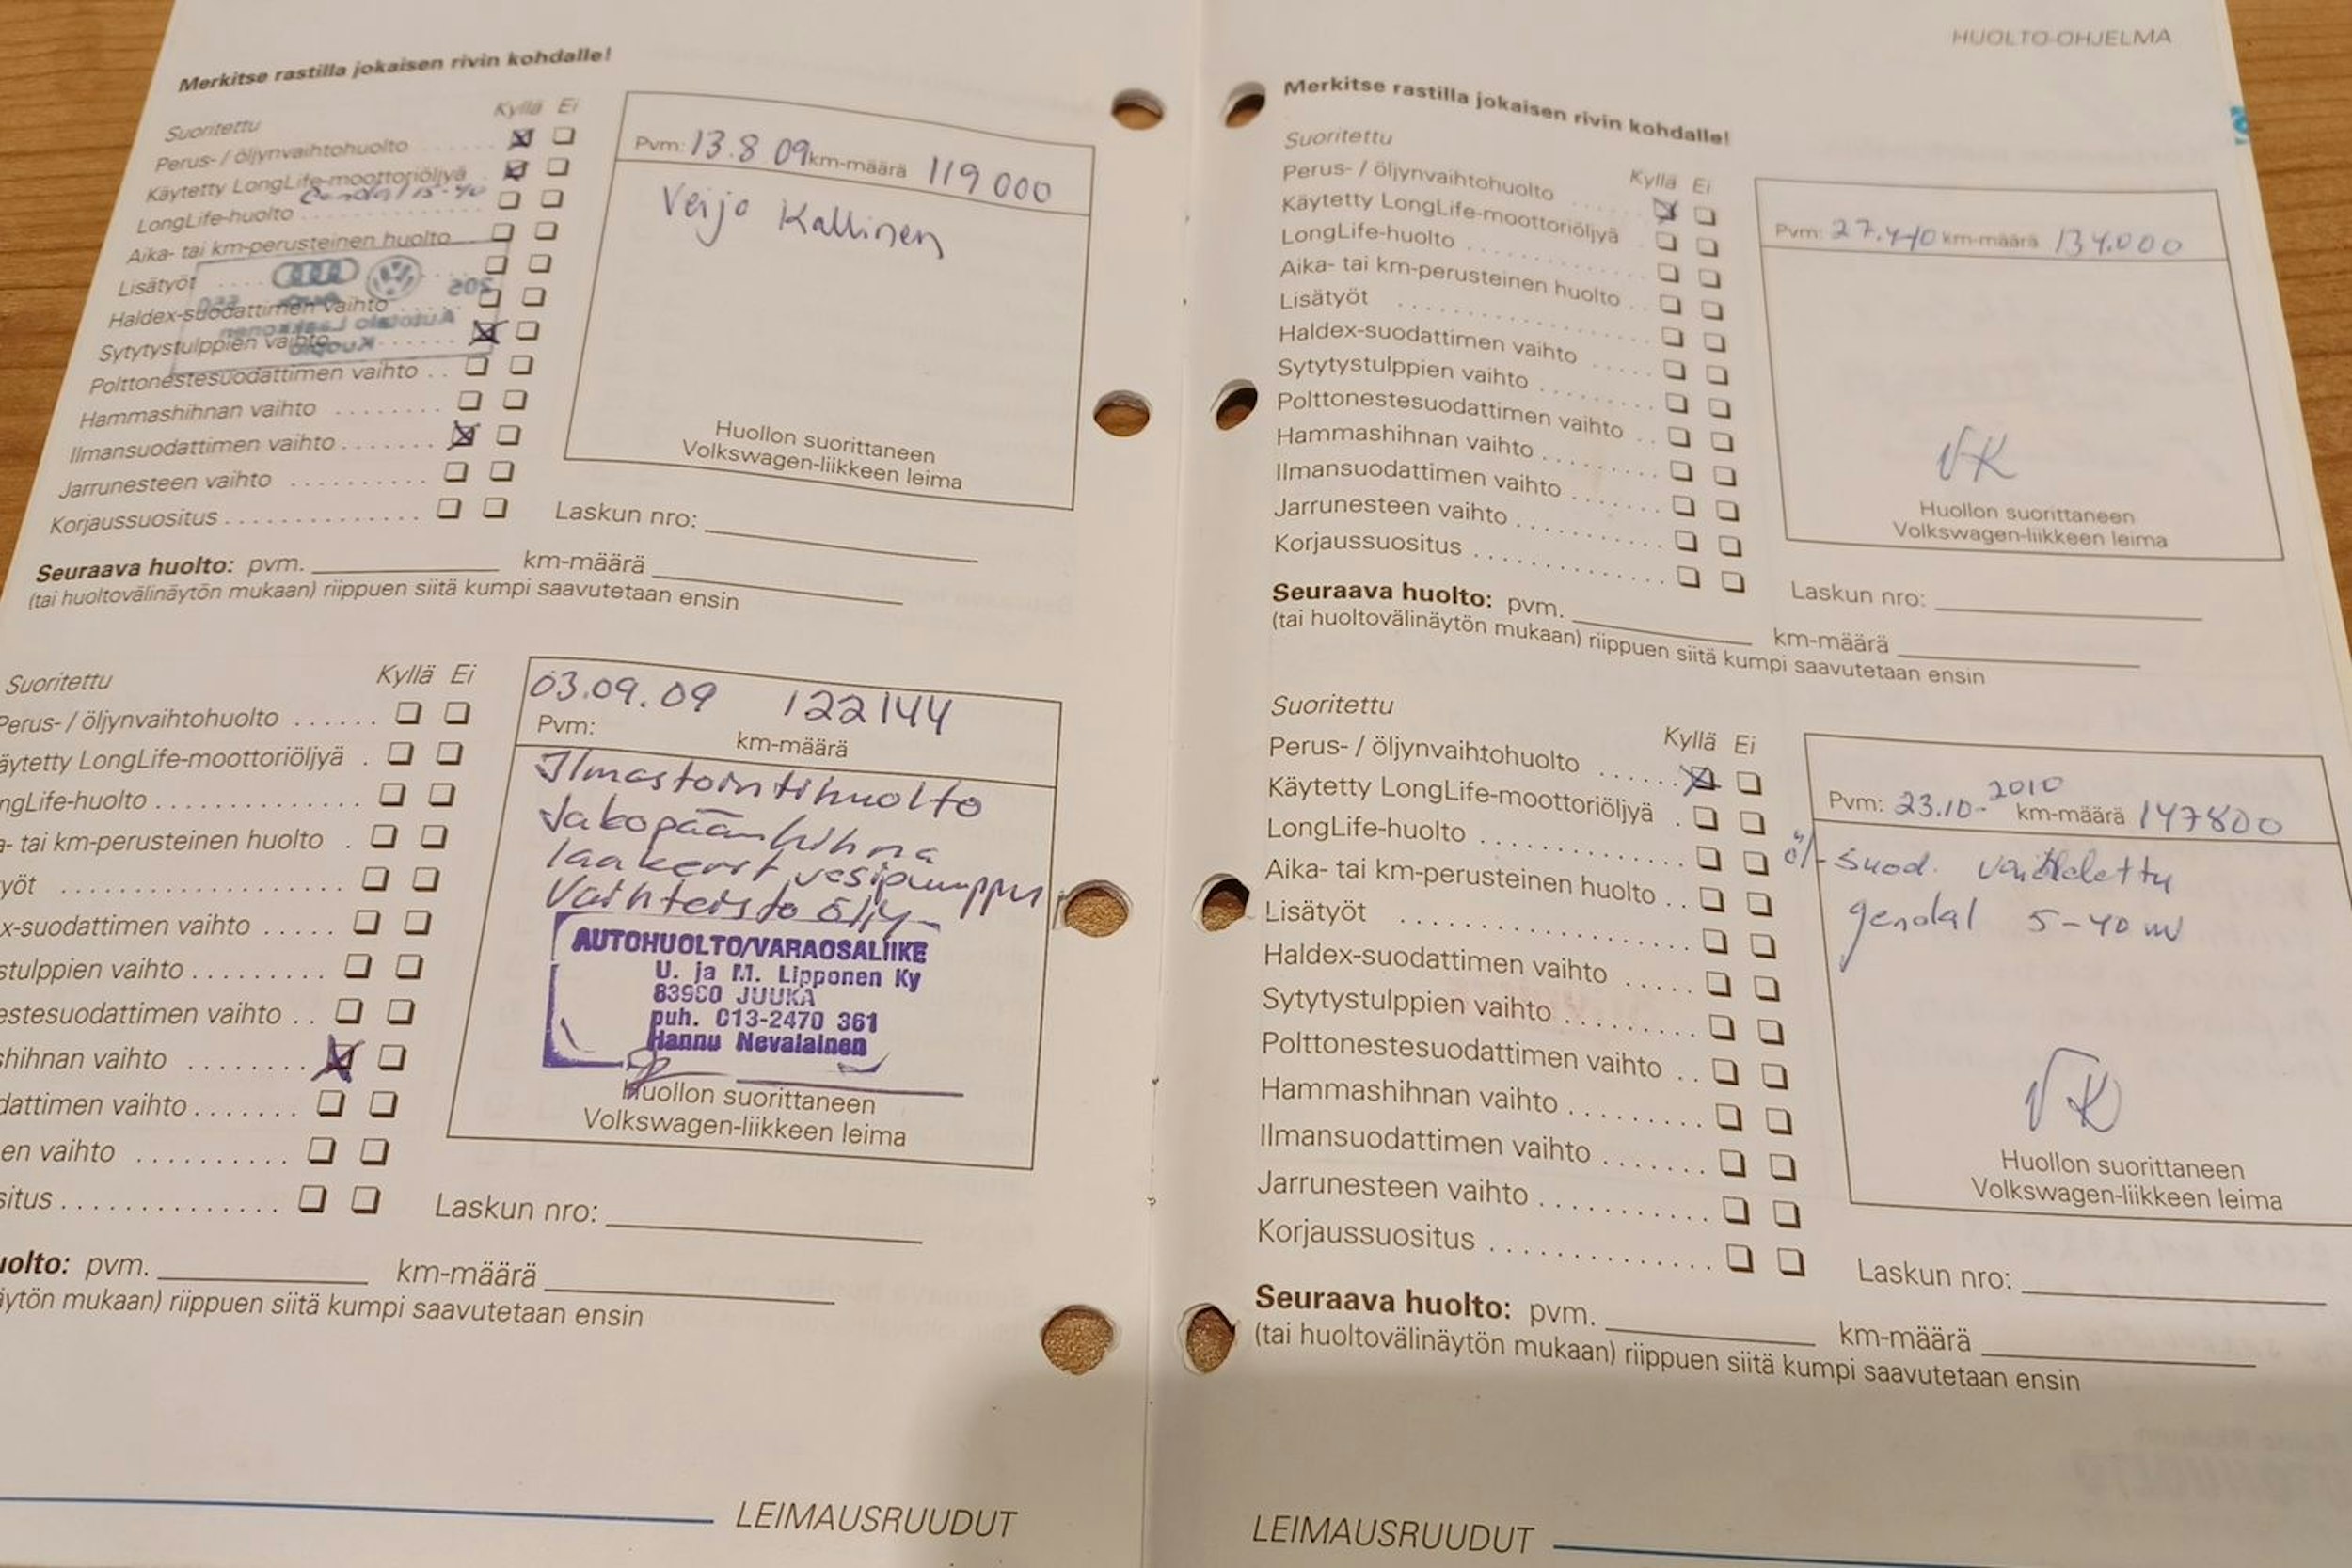 HUOLTO-OHJELMA
Merkitse rastilla jokaisen rivin kohdalle!
Suoritettu Kyllä Ei
Perus- / öljynvaihtohuolto
Käytetty LongLife-moottoriöljyä
15-40
LongLife-huolto
Aika- tai km-perusteinen huolto
Lisätyöt
Haldex-suodattimen vaihto
Sytytystulppien vaihto
Polttonestesuodattimen vaihto
Hammashihnan vaihto
Ilmansuodattimen vaihto
Jarrunesteen vaihto
Korjaussuositus
Pvm: 13.8 09 km-määrä 119 000
Veijo Kallinen
Huollon suorittaneen
Volkswagen-liikkeen leima
Laskun nro:
Seuraava huolto: pvm. km-määrä
(tai huoltovälinäytön mukaan) riippuen siitä kumpi saavutetaan ensin
Suoritettu Kyllä Ei
Perus- / öljynvaihtohuolto
äytetty LongLife-moottoriöljyä
ngLife-huolto
a- tai km-perusteinen huolto
yöt
x-suodattimen vaihto
stulppien vaihto
estesuodattimen vaihto
shihnan vaihto
dattimen vaihto
en vaihto
situs
03.09.09 122144
Pvm: km-määrä
Ilmastointihuolto
Jakopäänhihna
laakerit vesipumppu
Vaihteisto öljy
AUTOHUOLTO/VARAOSALIIKE
U. ja M. Lipponen Ky
83900 JUUKA
puh. 013-2470 361
Hannu Nevalainen
Huollon suorittaneen
Volkswagen-liikkeen leima
Laskun nro:
uolto: pvm. km-määrä
äytön mukaan) riippuen siitä kumpi saavutetaan ensin
LEIMAUSRUUDUT
Merkitse rastilla jokaisen rivin kohdalle!
Suoritettu Kyllä Ei
Perus- / öljynvaihtohuolto
Käytetty LongLife-moottoriöljyä
LongLife-huolto
Aika- tai km-perusteinen huolto
Lisätyöt
Haldex-suodattimen vaihto
Sytytystulppien vaihto
Polttonestesuodattimen vaihto
Hammashihnan vaihto
Ilmansuodattimen vaihto
Jarrunesteen vaihto
Korjaussuositus
Pvm: 27.4-10 km-määrä 134.000
VK
Huollon suorittaneen
Volkswagen-liikkeen leima
Laskun nro:
Seuraava huolto: pvm. km-määrä
(tai huoltovälinäytön mukaan) riippuen siitä kumpi saavutetaan ensin
Suoritettu Kyllä Ei
Perus- / öljynvaihtohuolto
Käytetty LongLife-moottoriöljyä
LongLife-huolto
Aika- tai km-perusteinen huolto
Lisätyöt
Haldex-suodattimen vaihto
Sytytystulppien vaihto
Polttonestesuodattimen vaihto
Hammashihnan vaihto
Ilmansuodattimen vaihto
Jarrunesteen vaihto
Korjaussuositus
Pvm: 23.10-2010 km-määrä 147800
öl-suod. vaihdettu
gendal 5-40
VK
Huollon suorittaneen
Volkswagen-liikkeen leima
Laskun nro:
Seuraava huolto: pvm. km-määrä
(tai huoltovälinäytön mukaan) riippuen siitä kumpi saavutetaan ensin
LEIMAUSRUUDUT